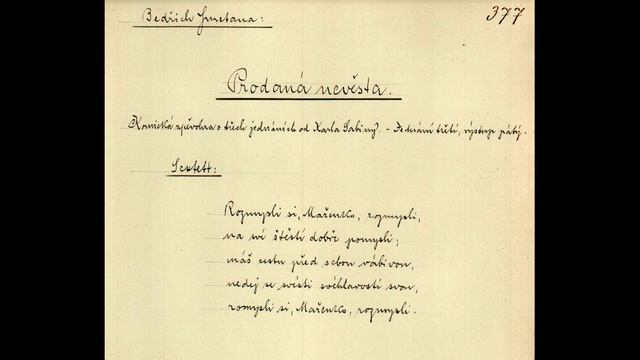 Bedřich Smetana:
377
Prodaná nevěsta.
Komická zpěvohra o třech jednáních od Karla Sabiny. - Jednání třetí, výstup pátý.
Sextett:
Rozmysli si, Mařenko, rozmysli,
na své štěstí dobře pomysli;
máš cestu před sebou vábivou,
nedej se svésti svéhlavostí svou,
rozmysli si, Mařenko, rozmysli.